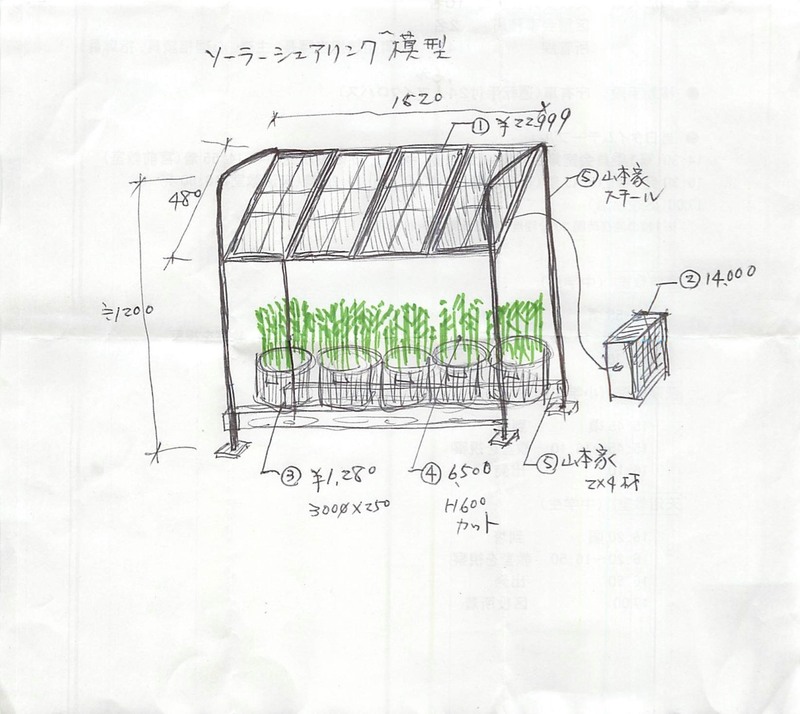 ソーラーシェアリング模型
1820
① ¥22,999
⑤ 山本家
スチール
480
② 14,000
≒1200
③ ¥1,280
300φ×250
④ 6,500
H600
カット
⑤ 山本家
2×4材